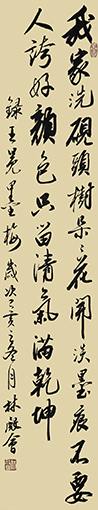 我家洗硯頭樹朵〻花開淡墨痕不要
人誇好顏色只留清氣滿乾坤
錄王冕墨梅 歲次辛亥冬月 林啟會